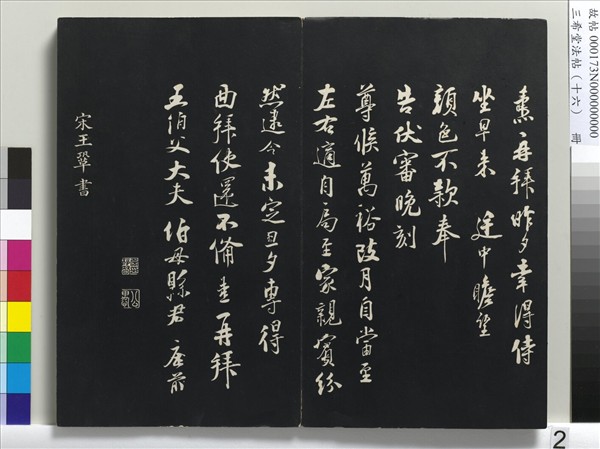 再拜昨夕幸得侍
坐早来 廷中瞻望
顏色不款奉
告伏審晚刻
尊候萬裕改月自當至
左右適自局至家親賓紛
然逮今未定旦夕專得
面拜使還不備 再拜
五伯父大夫 伯母縣君 座前
宋王鞏書
故帖 000173N000000000
三希堂法帖(十六) 冊
2